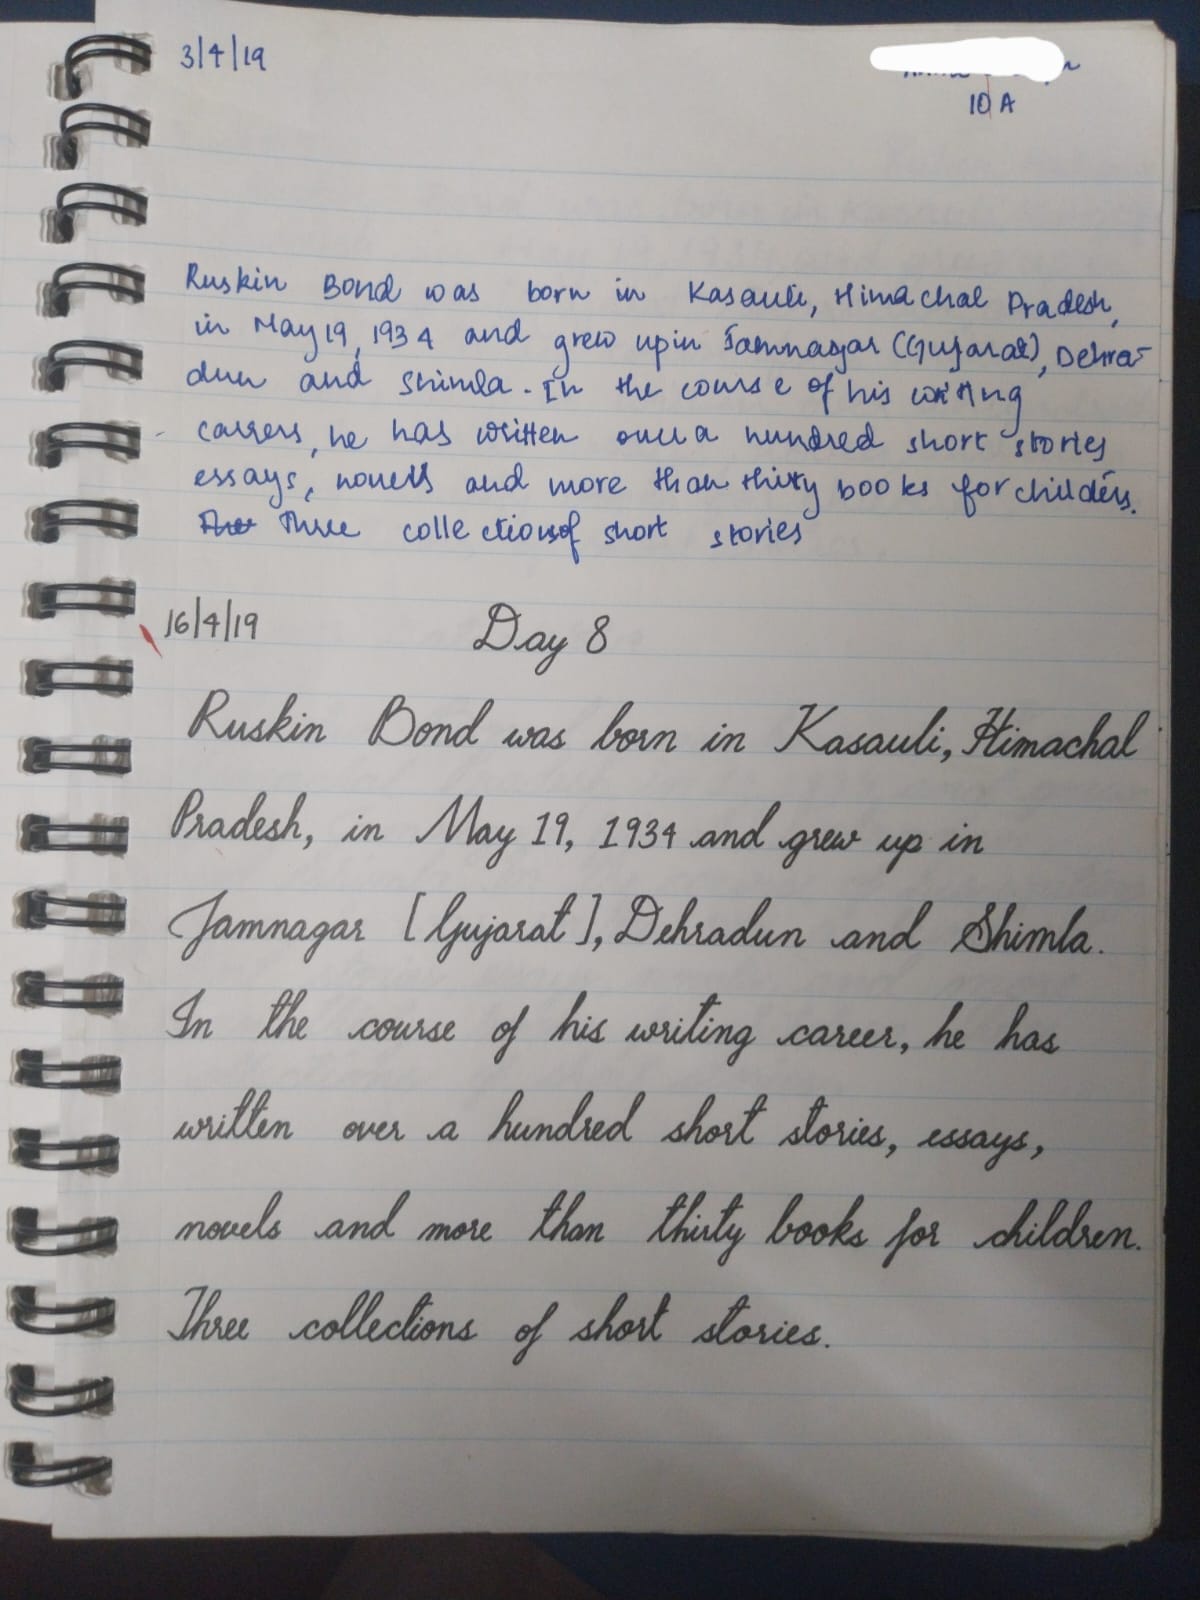 3/4/19
10 A
Ruskin Bond was born in Kasauli, Himachal Pradesh,
in May 19, 1934 and grew upin Jamnagar (Gujarat), Dehra-
dun and Shimla. In the course of his writing
carrers, he has written over a hundred short stories
essays, novells and more than thirty books for childers.
Three collectionsof short stories
16/4/19 Day 8
Ruskin Bond was born in Kasauli, Himachal
Pradesh, in May 19, 1934 and grew up in
Jamnagar [Gujarat], Dehradun and Shimla.
In the course of his writing career, he has
written over a hundred short stories, essays,
novels and more than thirty books for children.
Three collections of short stories.